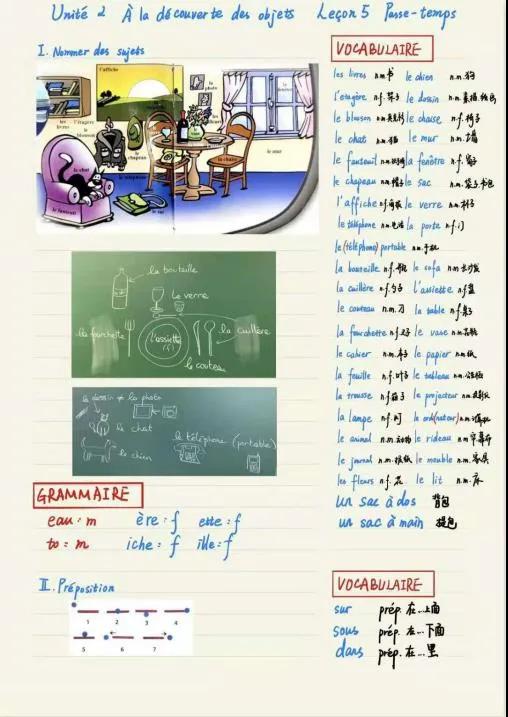 Unité 2 À la découverte des objets Leçon 5 Passe-temps
I. Nommer des sujets
l'affiche
la photo
la fenêtre
les livres
l'étagère
le blouson
le chapeau
la chaise
le mur
le chat
le téléphone
le fauteuil
le sac
la bouteille
le verre
la fourchette
l'assiette
la cuillère
le couteau
le dessin ≠ la photo
le chat
le chien
le téléphone (portable)
GRAMMAIRE
eau : m ère : f ette : f
to : m iche : f ille : f
II. Préposition
1 2 3 4
5 6 7
VOCABULAIRE
les livres n.m.书 le chien n.m.狗
l'etagère n.f.架子 le dessin n.m.
le blouson n.m. la chaise n.f.椅子
le chat n.m.猫 le mur n.m.墙
le fauteuil n.m. la fenêtre n.f.窗子
le chapeau n.m.帽子 le sac n.m.袋子,书包
l'affiche n.f.海报 le verre n.m.杯子
le téléphone n.m.电话 la porte n.f.门
le (téléphone) portable n.m.手机
la bouteille n.f.瓶 le sofa n.m.长沙发
la cuillère n.f.勺子 l'assiette n.f.盘
le couteau n.m.刀 la table n.f.桌子
la fourchette n.f.叉子 le vase n.m.花瓶
le cahier n.m.本子 le papier n.m.纸
la feuille n.f.叶子 le tableau n.m.
la trousse n.f. le projecteur n.m.投影仪
la lampe n.f.灯 la ordi(nateur) n.m.计算机
le animal n.m.动物 le rideau n.m.
le journal n.m.报纸 le meuble n.m.家具
les fleurs n.f.花 le lit n.m.床
un sac à dos 背包
un sac à main 提包
VOCABULAIRE
sur prép. 在...上面
sous prép. 在...下面
dans prép. 在...里